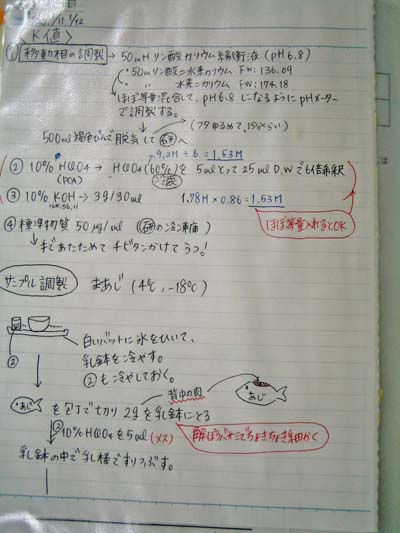 1/11, 1/12
<K値>
① 移動相の調製 → 50mM リン酸カリウム緩衝液 (pH6.8)
・50mM リン酸二水素カリウム FW: 136.09
・ 〃 水素二カリウム FW: 174.18
ほぼ等量混合して、pH6.8になるようにpHメーターで調製する。
(フタゆるめて、15分くらい)
500ml 褐色びんで脱気して
9.2M ÷ 6 = 1.53M
② 10% HClO4 → HClO4 (60%)を 5mlとって 25ml D.Wで6倍希釈
(PCA)
③ 10% KOH → 3g/30ml 1.78M × 0.86 = 1.53M
ほぼ等量入れるとOK
④ 標準物質 50μg/ml ( の冷凍庫)
手であたためて
サンプル調製 まあじ (4℃, -18℃)
白いバットに氷をひいて、
乳鉢を冷やす。
② ②も冷やしておく。
背中の肉
あじ
を包丁で切り 2gを乳鉢にとる
② 10% HClO4を5ml (メス) 解ぼうバサミでちょきちょき細かく
乳鉢の中で乳棒ですりつぶす。